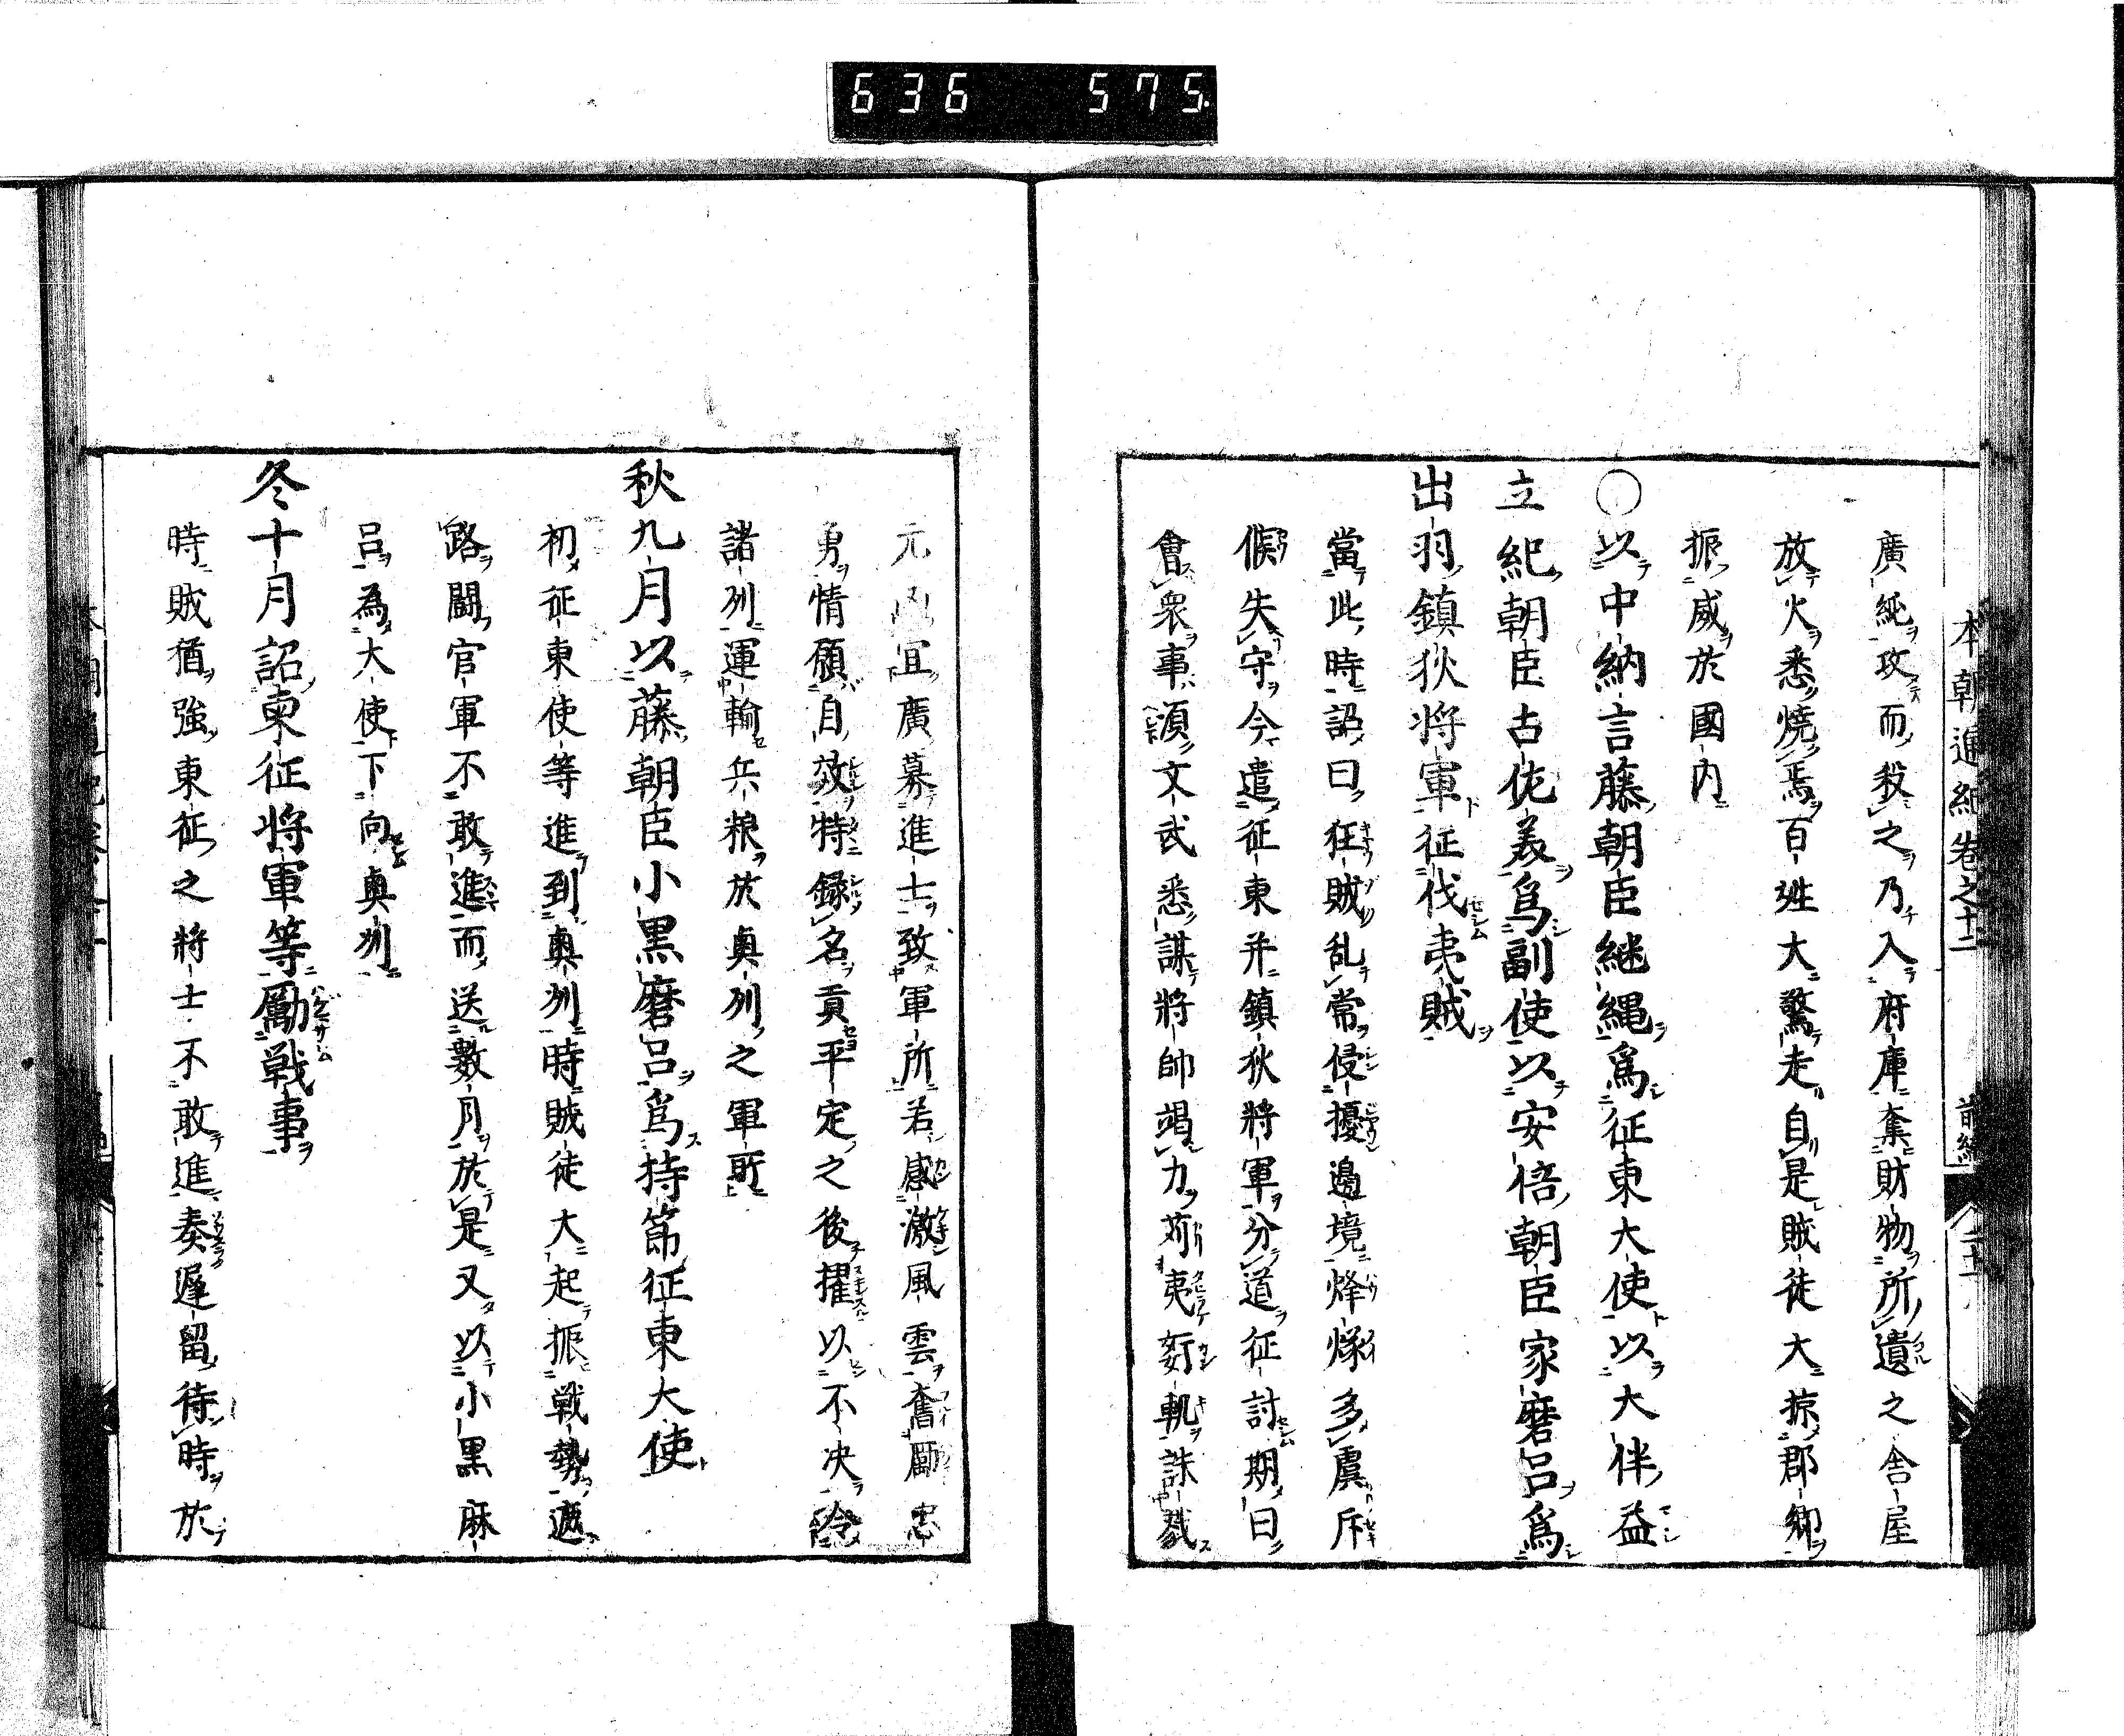 636 575
本朝通紀卷之十二 前編 二十一
廣純攻而殺之乃入府庫奪財物所遺之舎屋
放火悉燒焉百姓大驚走自是賊徒大掠郡郷
振威於國内
○以中納言藤朝臣継縄爲征東大使以大伴益
立紀朝臣古佐美爲副使以安倍朝臣家磨呂爲
出羽鎮狄将軍征伐夷賊
當此時詔曰狂賊乱常侵擾邊境烽燧多虞斥
候失守今遣征東并鎮狄將軍分道征討期日
會衆事須文武悉謀將帥竭力苅夷姧軌誅戮
元凶宜廣募進士致軍所若感激風雲奮厲忠
勇情願自效特録名貢平定之後擢以不次
諸刕運輸兵粮於奥刕之軍所
秋九月以藤朝臣小黒磨呂爲持節征東大使
初征東使等進到奥刕時賊徒大起振戦勢遮
路闘官軍不敢進而送數月於是又以小黒麻
呂為大使下向奥刕
冬十月詔東征将軍等勵戦事
時賊猶強東征之將士不敢進奏遲留待時於